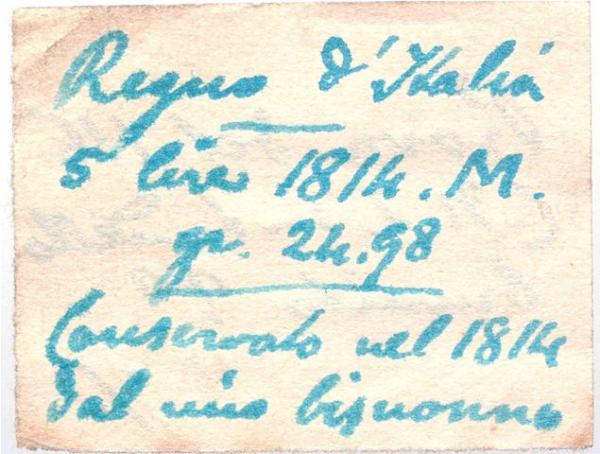 Regno d'Italia
5 lire 1814. M.
gr. 24.98
Conservato nel 1814
dal mio bisnonno